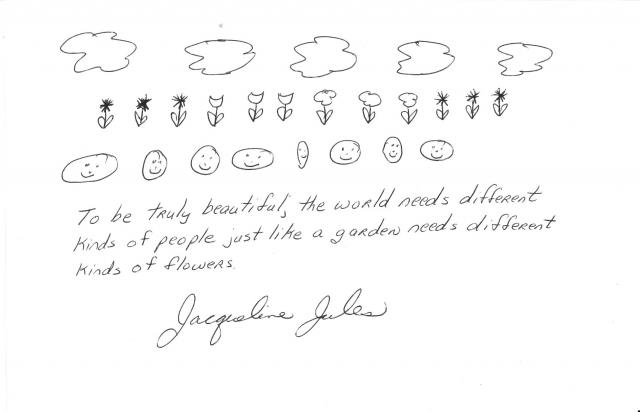 To be truly beautiful, the world needs different
kinds of people just like a garden needs different
kinds of flowers.
Jacqueline Jules